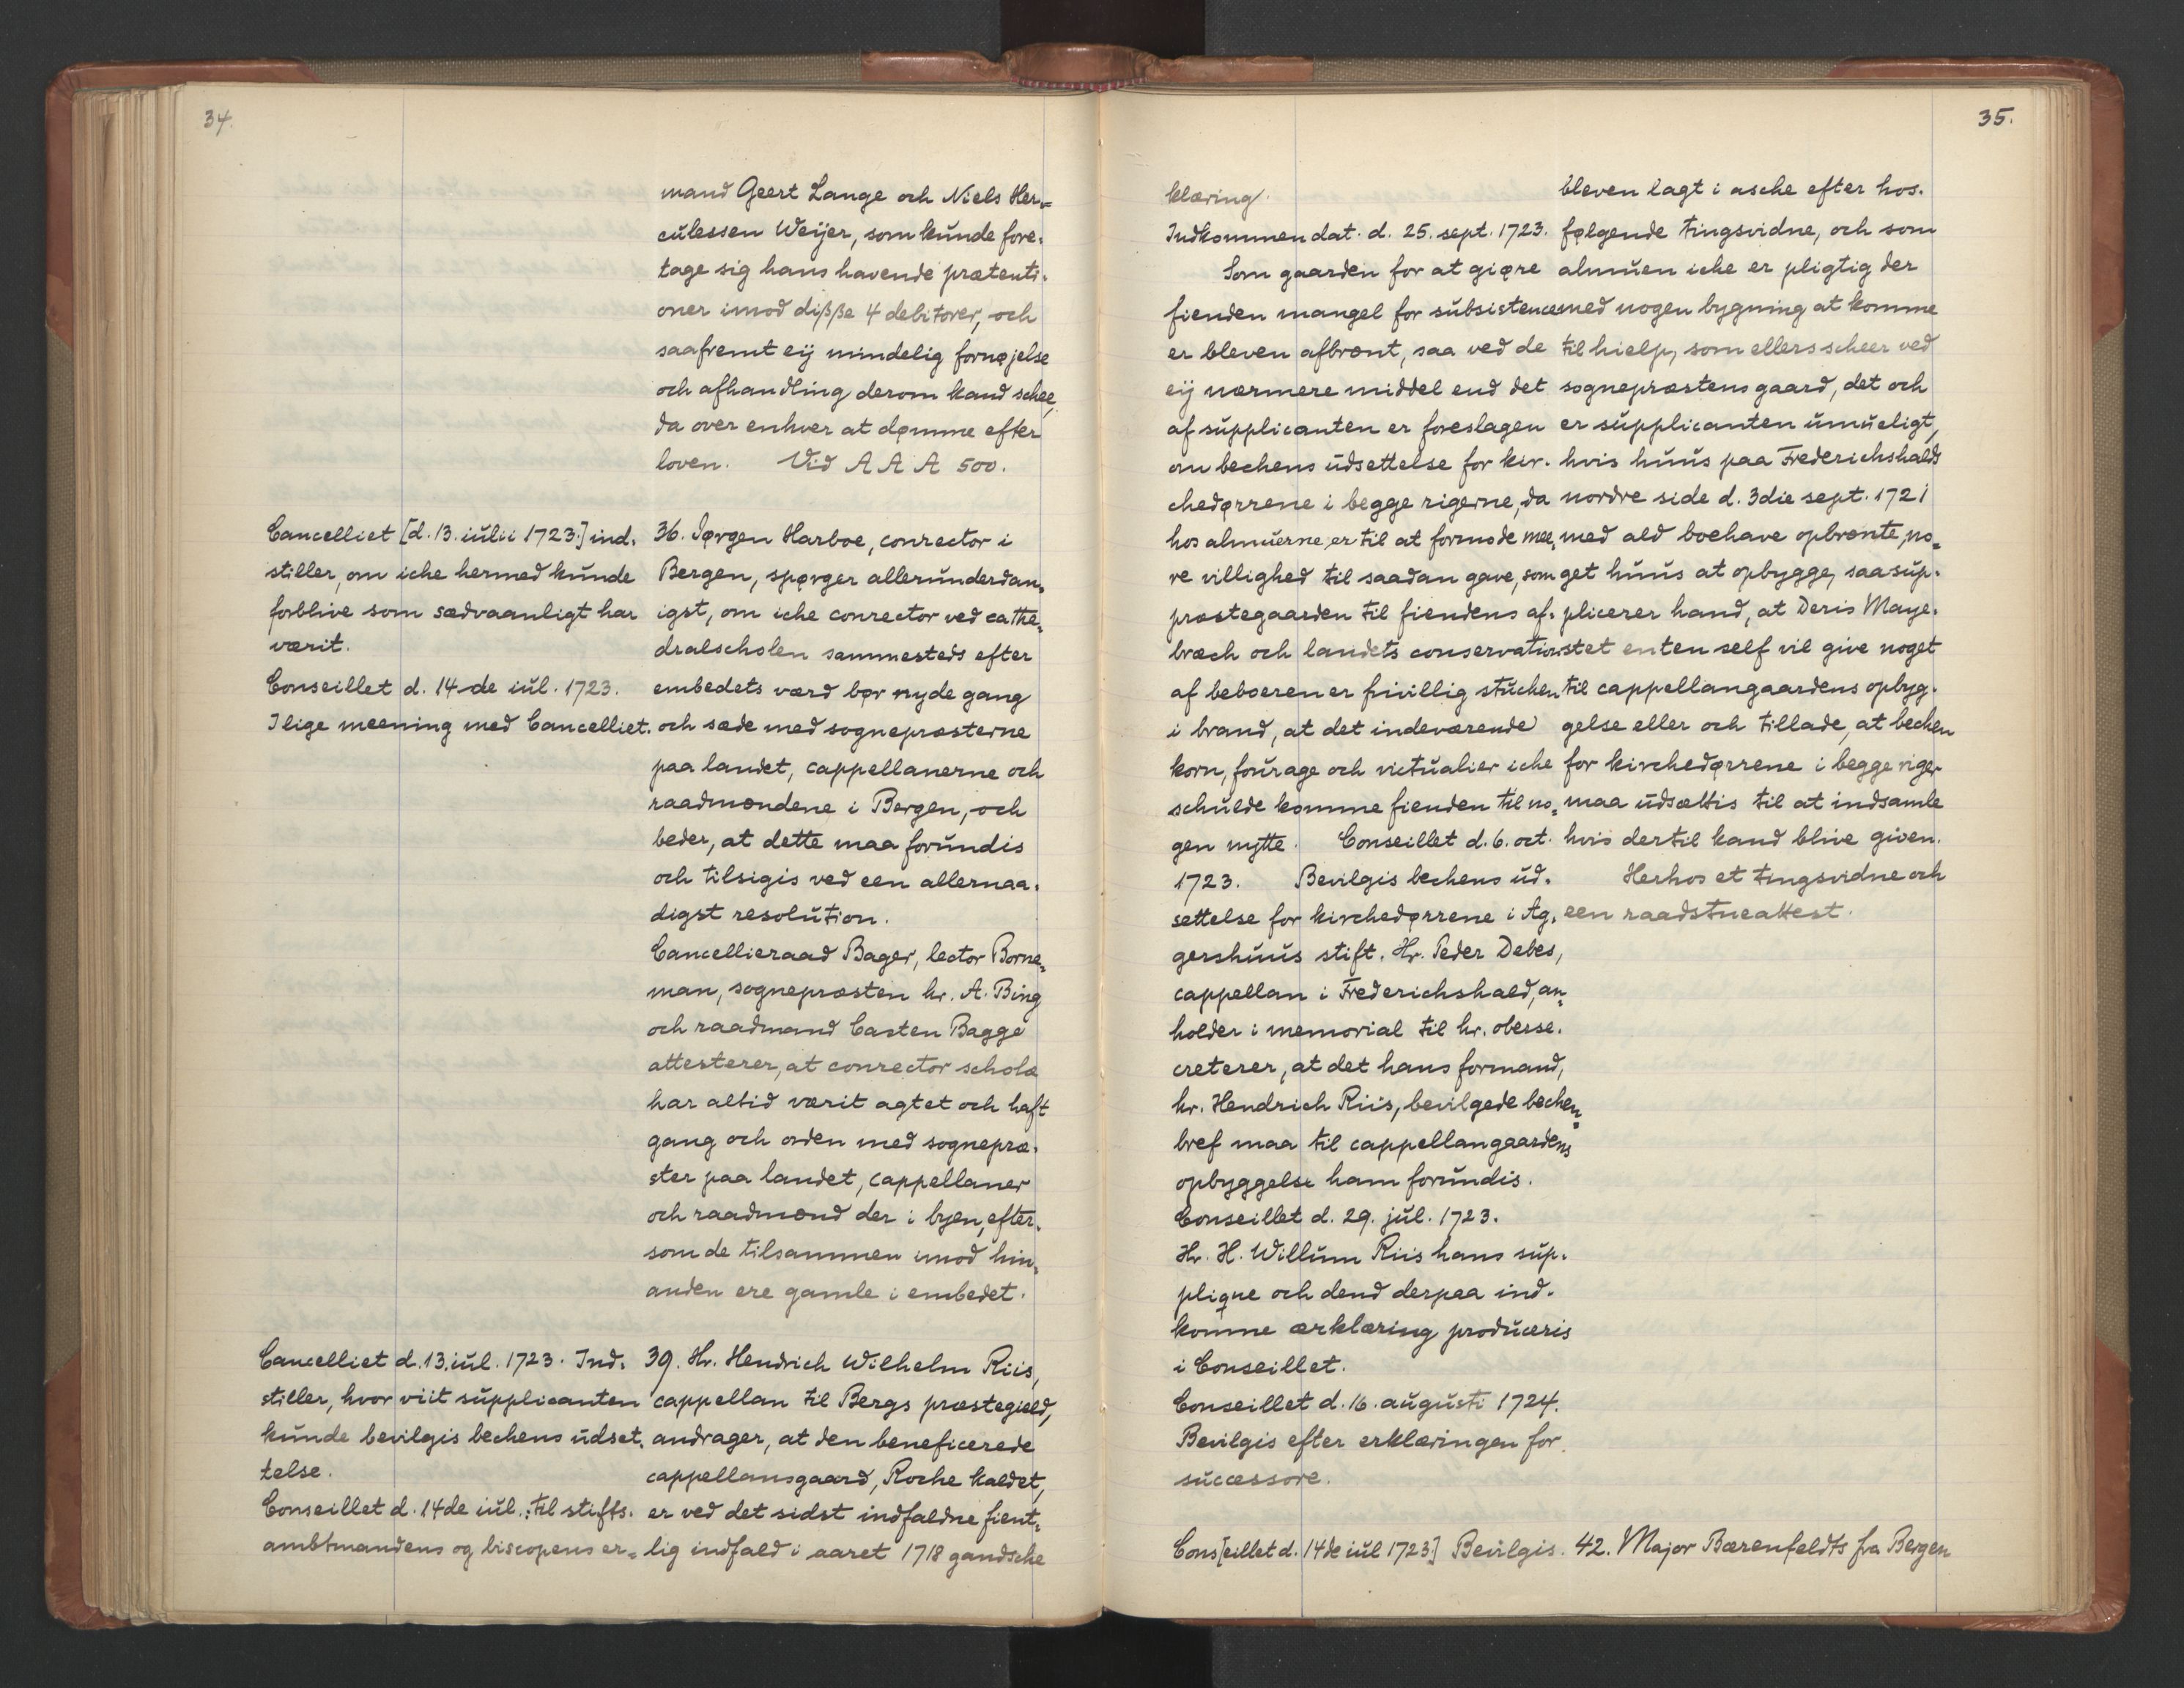 34.
mand Geert Lange och Niels Her=
culessen Weÿer, som kunde fore-
tage sig hans havende prætenti-
oner imod diszse 4 debitorer, och
saafremt eÿ mindelig fornøjelse
och afhandling derom kand schee,
da over enhver at dømme efter
loven. Vid A A A 500.
Cancelliet [d. 13. iulii 1723.] ind-
stiller, om iche hermed kunde
forblive som sædvaanligt har
værit.
Conseillet d. 14-de iul. 1723.
I lige meening med Cancelliet.
36. Jørgen Harboe, conrector i
Bergen, spørger allerunderdan-
igst, om iche conrector ved cathe-
dralscholen sammesteds efter
embedets værd bør nyde gang
och sæde med sognepræsterne
paa landet, cappellanerne och
raadmændene i Bergen, och
beder, at dette maa forundis
och tilsigis ved een allernaa-
digst resolution.
Cancellieraad Bager, lector Borne=
man, sognepræsten hr. A. Bing
och raadmand Casten Bagge
attesterer, at conrector scholæ
har altid værit agtet och haft
gang och orden med sognepræ-
ster paa landet, cappellaner
och raadmænd der i byen, efter-
som de tilsammen imod hin-
anden ere gamle i embedet.
Cancelliet d. 13. iul. 1723. Ind-
stiller, hvor viit supplicanten
kunde bevilgis bechens udset-
telse.
Conseillet d. 14de iul.: til stifts-
ambtmandens og biscopens er=
39. Hr. Hendrich Wilhelm Riis,
cappellan til Bergs præstegield,
andrager, at den beneficerede
cappellansgaard, Roche kaldet,
er ved det sidst indfaldne fient-
lig indfald i aaret 1718 gandsche
35.
klæring.
Indkommen dat. d. 25. sept. 1723.
Som gaarden for at giøre
fienden mangel for subsistence
er bleven afbrænt, saa ved de
eÿ nærmere middel end det
af supplicanten er foreslagen
om bechens udsettelse for kir-
chedørrene i begge rigerne, da
hos almuerne er til at formode mee-
re villighed til saadan gave, som
præstegaarden til fiendens af-
bræch och landets conservation
af beboeren er frivillig stuchen
i brand, at det indeværende
korn, fourage och victualier iche
schulde komme fienden til no=
gen nytte. Conseillet d. 6. oct.
1723. Bevilgis bechens ud-
settelse for kirchedørrene i Ag-
gershuus stift. Hr. Peder Debes,
cappellan i Frederichshald, an=
holder i memorial til hr. oberse-
creterer, at det hans formand,
hr. Hendrich Riis, bevilgede bechen=
bref maa til cappellangaardens
opbyggelse ham forundis.
Conseillet d. 29. jul. 1723.
Hr. H. Willum Riis hans sup-
plique och dend derpaa ind-
komne ærklæring produceris
i Conseillet.
Conseillet d. 16. augusti 1724.
Bevilgis efter erklæringen for
successore.
bleven lagt i asche efter hos-
følgende tingsvidne, och som
almuen iche er pligtig der
med nogen bygning at komme
til hielp, som ellers scheer ved
sognepræstens gaard, det och
er supplicanten umueligt,
hvis huus paa Frederichshalds
nordre side d. 3die sept. 1721
med ald boehave opbrænte, no=
get huus at opbygge, saa sup-
plicerer hand, at Deris Maye-
stet enten self vil give noget
til cappellangaardens opbyg-
gelse eller och tillade, at bechen
for kirchedørrene i begge riger
maa udsættis til at indsamle
hvis dertil kand blive given.
Herhos et tingsvidne och
een raadstueattest.
Cons[eillet d. 14de iul 1723] Bevilgis.
42. Major Bærenfeldts fra Bergen